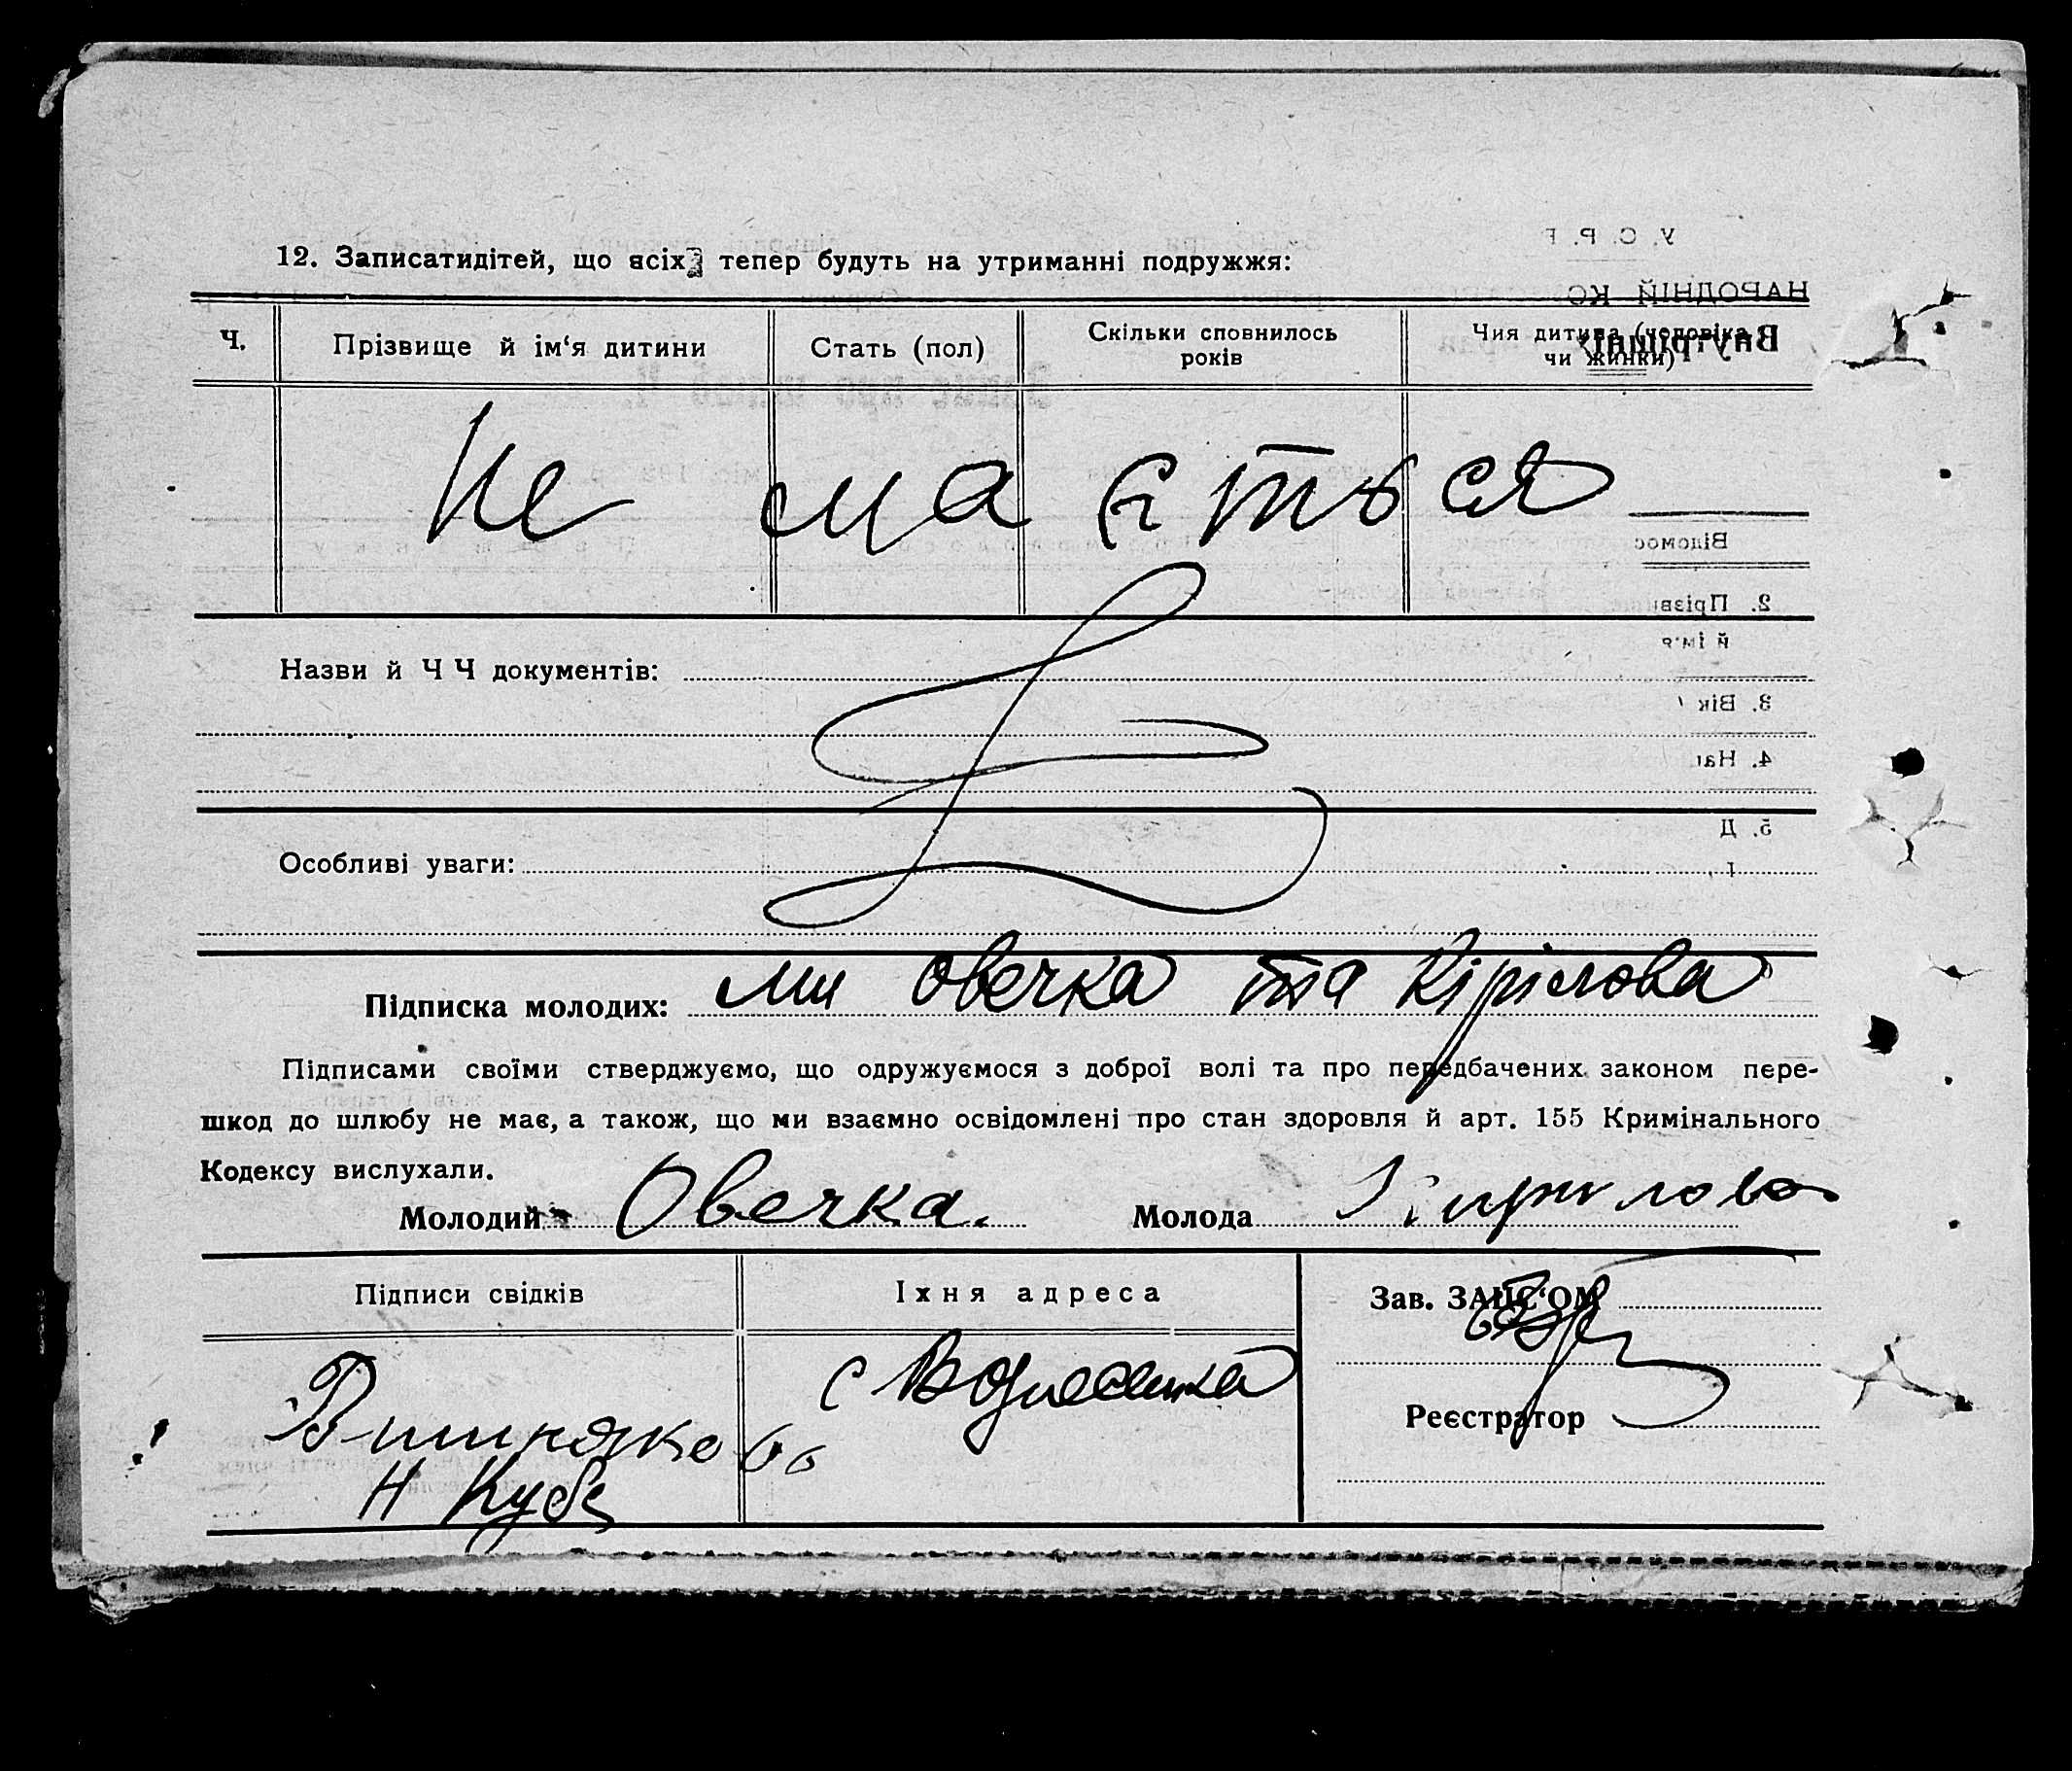 12. Записатидітей, що всіх тепер будуть на утриманні подружжя:
Ч. Прізвище й ім'я дитини Стать (пол) Скільки сповнилось років Чия дитина (человіка чи жинки)
Не мається
Назви й Ч Ч документів:
Особливі уваги:
Підписка молодих: ми Овечка та Кірілова
Підписами своїми стверджуємо, що одружуємося з доброї волі та про передбачених законом пере-
шкод до шлюбу не має, а також, що ми взаємно освідомлені про стан здоровля й арт. 155 Кримінального
Кодексу вислухали.
Молодий Овечка. Молода Кирилова
Підписи свідків Іхня адреса Зав. ЗАПС'ОМ
с Вознесенка
Реєстратор
Н Куба